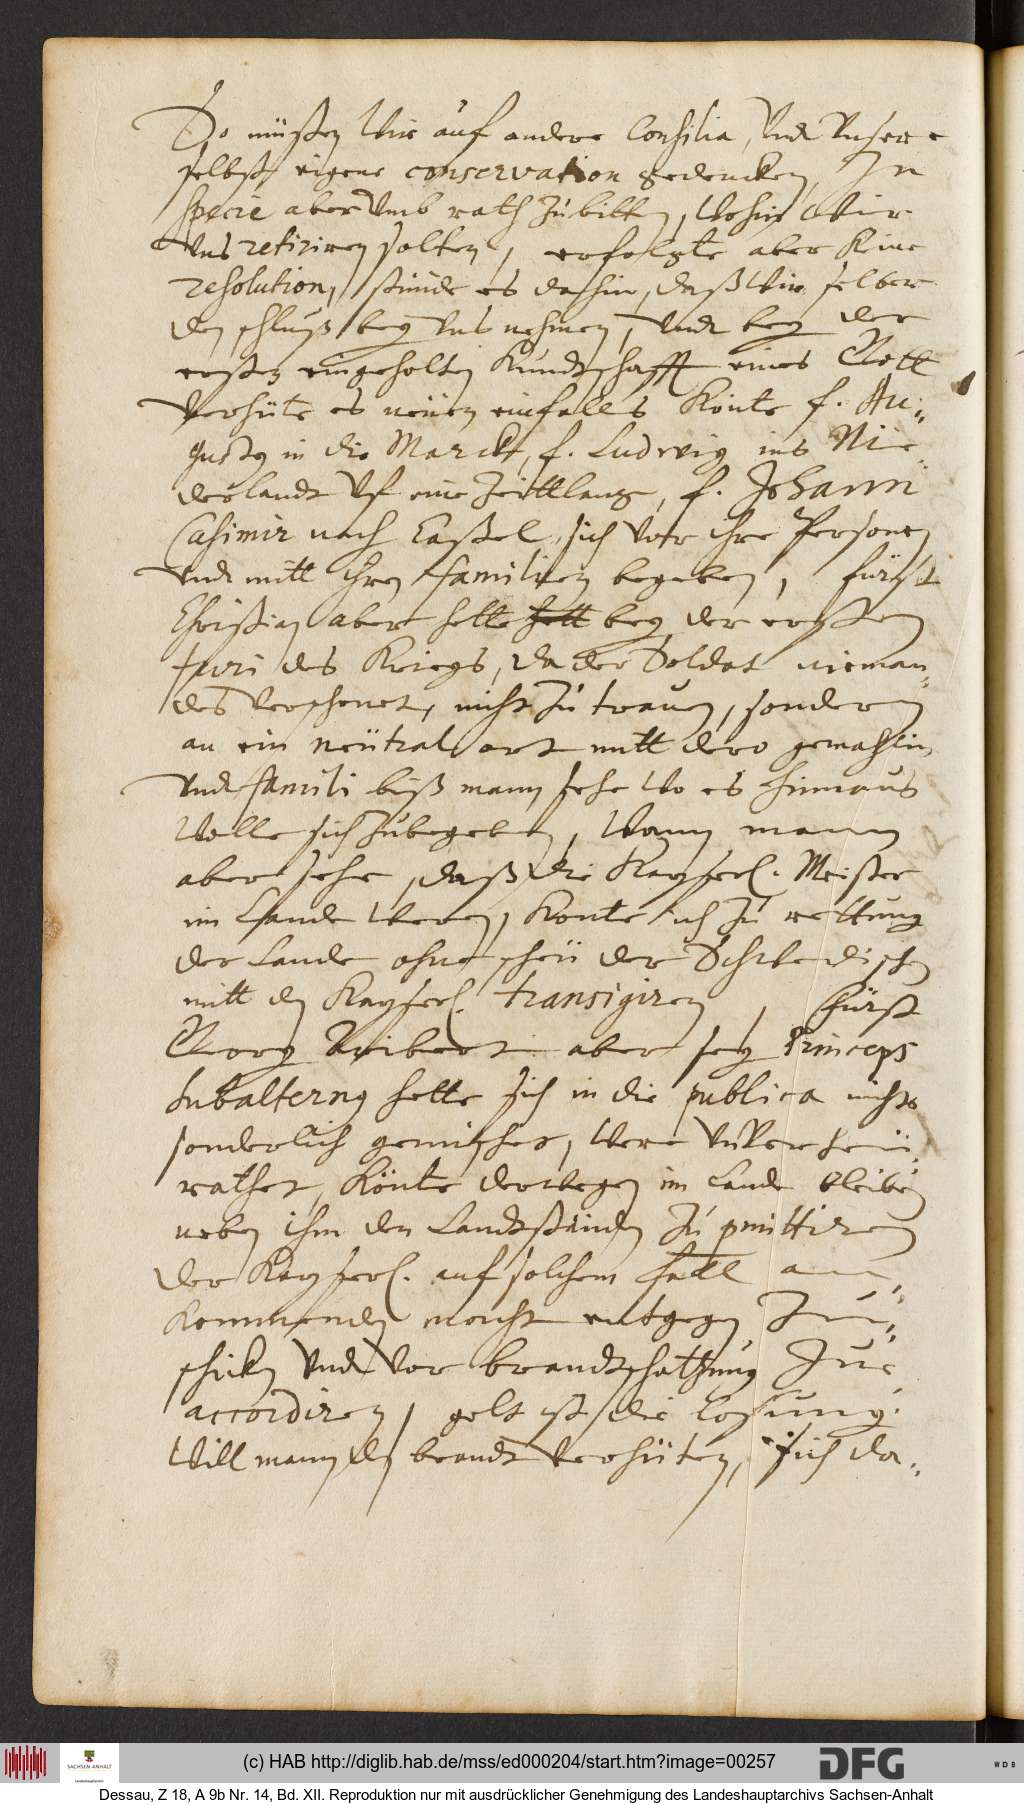 So müßen Wir auf andere Consilia, Vnd Vnsere
selbst eigene conservation gedencken, In
specie aber Vmb rath zu bitten, Wohin Wir
Vns retiriren solten, erfolgte aber keine
resolution, stünde es dahin, daß Wir selber
den schluß bey Vns nehmen, Vnd bey der
ersten eingeholten Kundtschafft eines Gott
Verhüte es neüen einfalls könte f. Au⸗
gustus in die Marck, f. Ludwig ins Nie⸗
derlandt Vf eine Zeittlang, f. Johann
Casimir nach Caßel, sich Vor ihre Personen
Vnd mitt ihren familien begeben, fürst
Christian aber hette hett bey der ersten
furi des Kriegs, da der Soldat nieman⸗
des Verschonet, nicht zu trauen, sondern
an ein neütral ort mitt dero gemahlin
Vnd famili biß mann sehe Wo es hinnaus
Wolle sich zubegeben, Wann mann
aber sehe, daß die Kayserl. Meister
im Lande Weren, könte ich zu rettung
der Lande ohne scheü der Schwedischen
mitt den Kayserl. transigiren, fürst
Georg Aribert aber sey Princeps
subalternus hette sich in die publica nichts
sonderlich gemischet, Were VnVerheü⸗
rathet, könte derwegen im Lande bleiben
neben ihm den Landtständen zu pmittiren
der Kayserl. auf solchem fall an⸗
kommenden macht entgegen zu⸗
schicken Vnd Vor brandtschatzung zu⸗
accordiren, gelt ist die Losung.
Will mann den brandt Verhüten, sich da⸗
(c) HAB http://diglib.hab.de/mss/ed000204/start.htm?image=00257
SACHSEN-ANHALT
DFG
WDB
Dessau, Z 18, A 9b Nr. 14, Bd. XII. Reproduktion nur mit ausdrücklicher Genehmigung des Landeshauptarchivs Sachsen-Anhalt